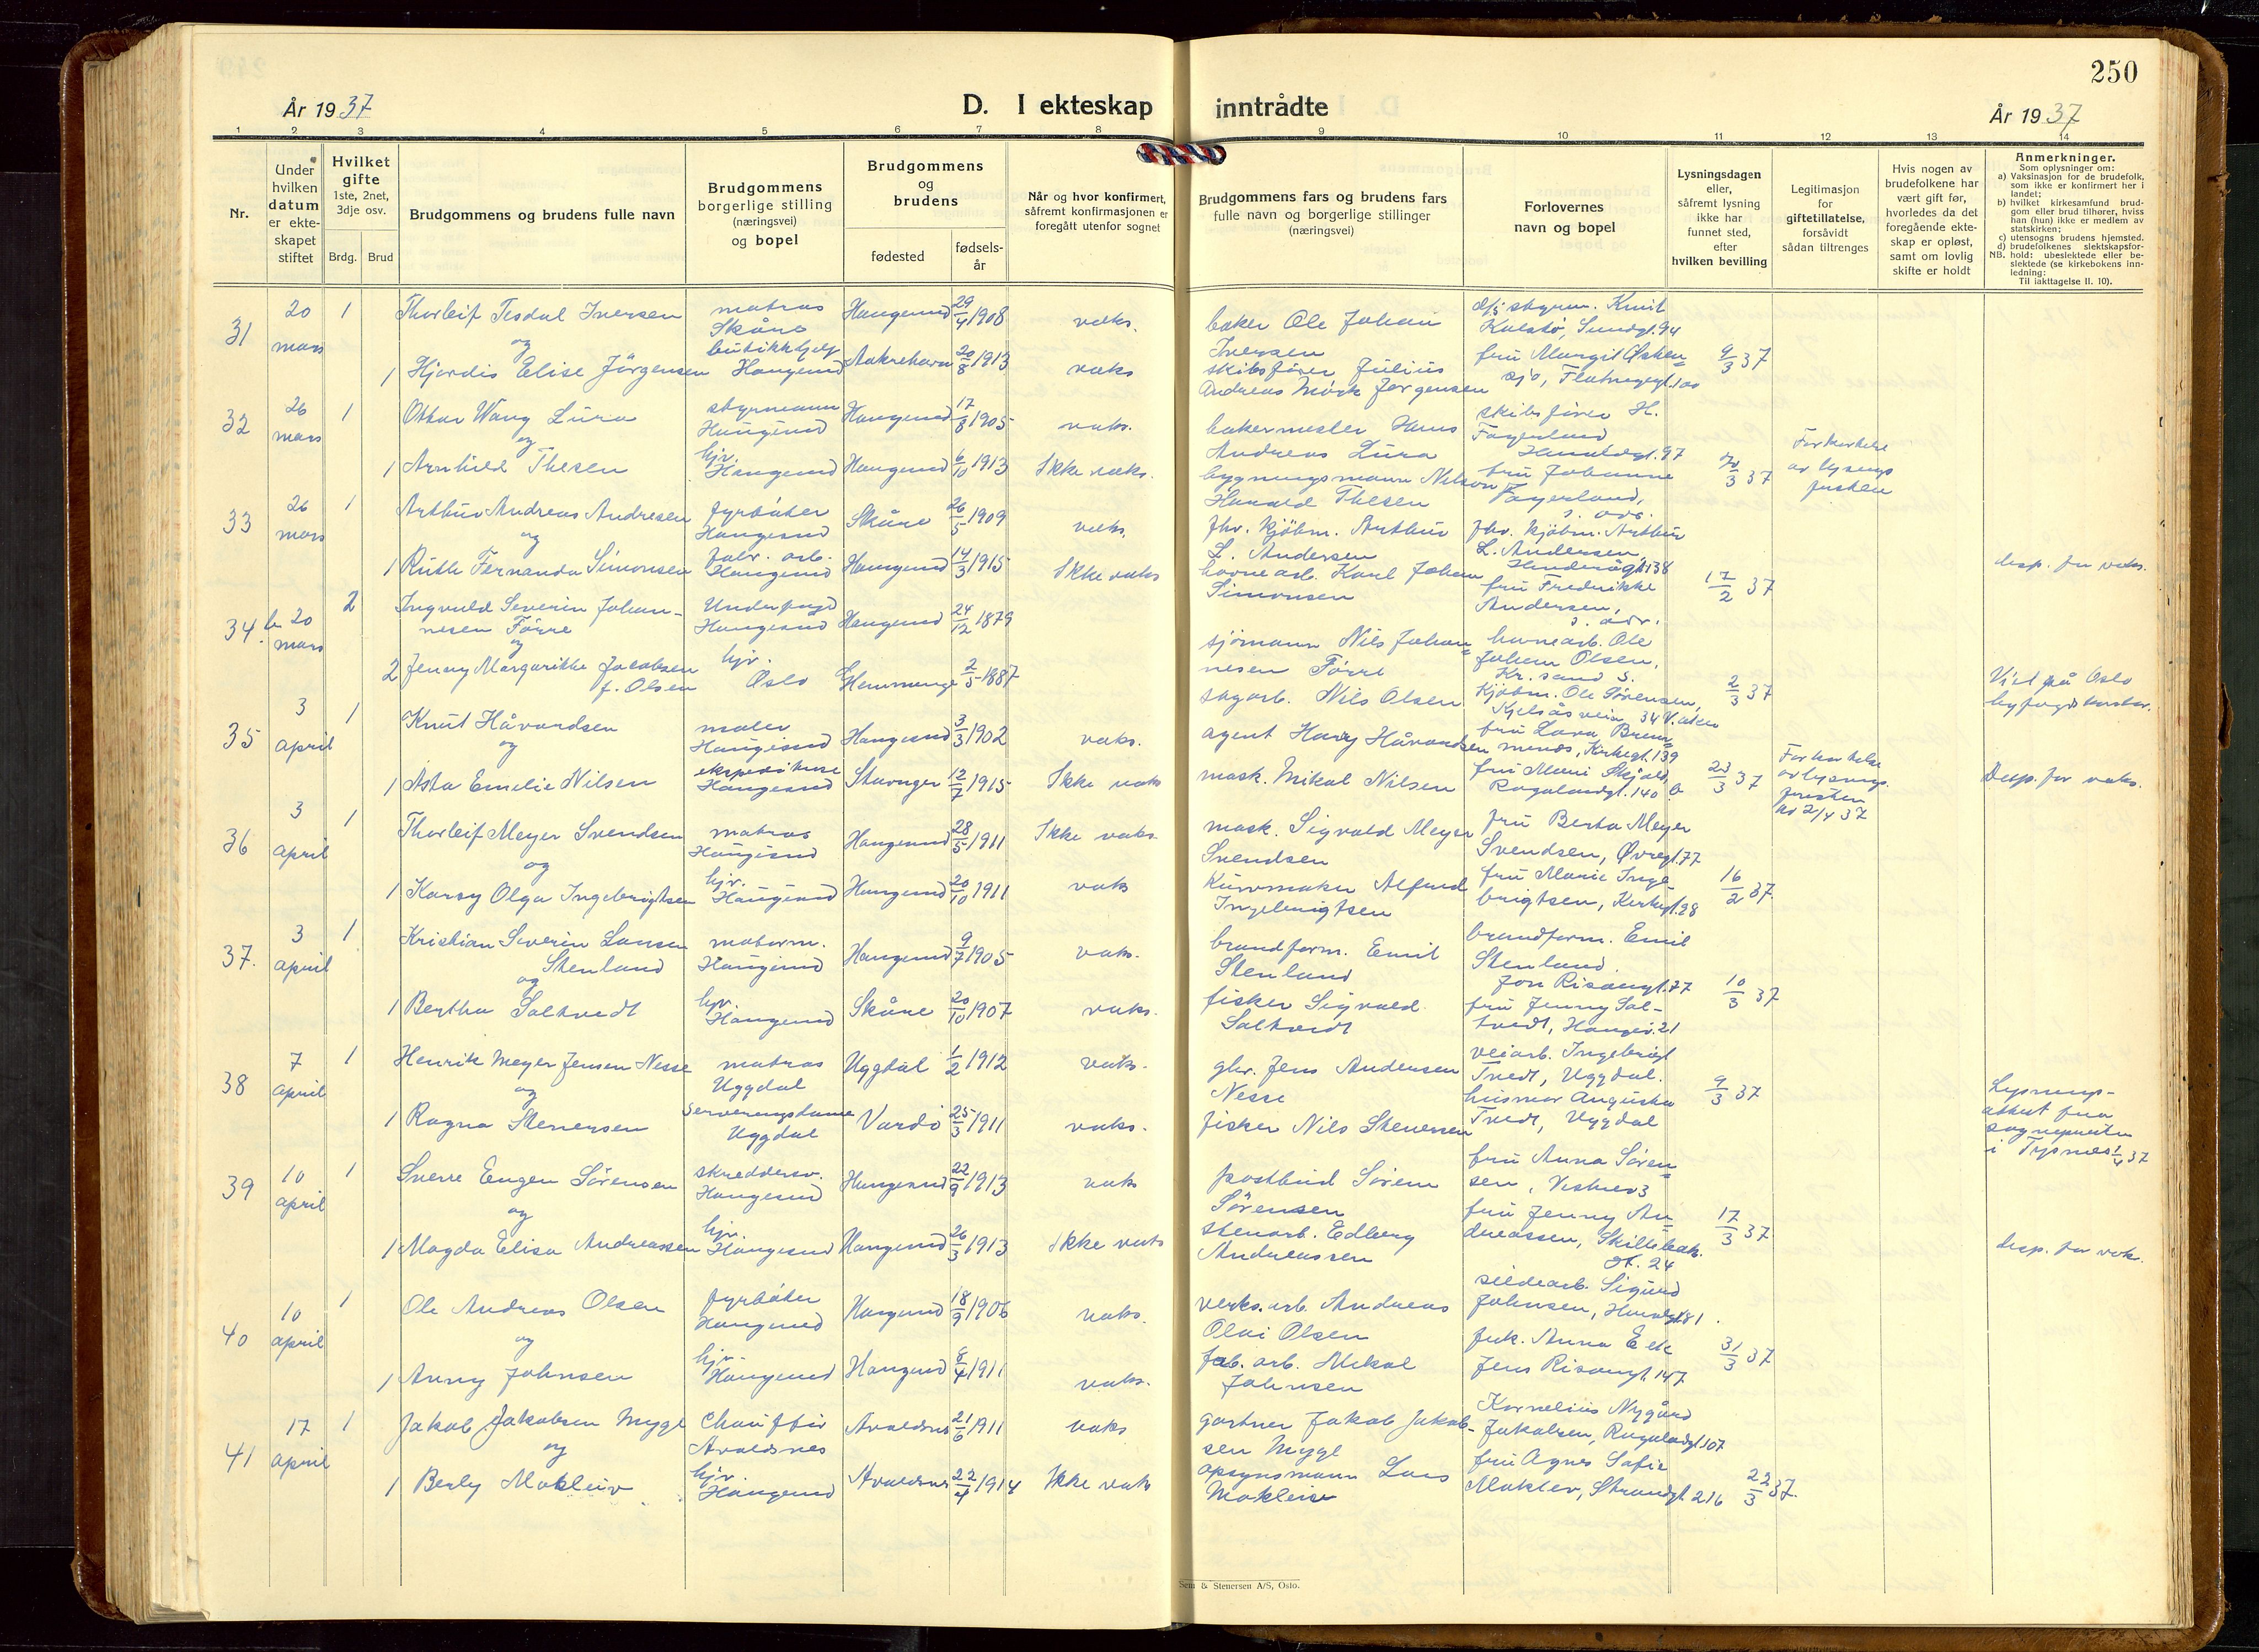 250
År 1937
D. I ekteskap inntrådte
År 1937
1 2 3 4 5 6 7 8 9 10 11 12 13 14
Nr.
Under
hvilken
datum
er ekte-
skapet
stiftet
Hvilket
gifte
1ste, 2net,
3dje osv.
Brdg. Brud
Brudgommens og brudens fulle navn
Brudgommens
borgerlige stilling
(næringsvei)
og bopel
Brudgommens
og
brudens
fødested
fødsels-
år
Når og hvor konfirmert,
såfremt konfirmasjonen er
foregått utenfor sognet
Brudgommens fars og brudens fars
fulle navn og borgerlige stillinger
(næringsvei)
Forlovernes
navn og bopel
Lysningsdagen
eller,
såfremt lysning
ikke har
funnet sted,
efter
hvilken bevilling
Legitimasjon
for
giftetillatelse,
forsåvidt
sådan tiltrenges
Hvis nogen av
brudefolkene har
vært gift før,
hvorledes da det
foregående ekte-
skap er opløst,
samt om lovlig
skifte er holdt
Anmerkninger.
Som oplysninger om:
a) Vaksinasjon for de brudefolk,
som ikke er konfirmert her i
landet;
b) hvilket kirkesamfund brud-
gom eller brud tilhører, hviss
han (hun) ikke er medlem av
statskirken;
c) utensogns brudens hjemsted.
d) brudefolkenes slektskapsfor-
NB. hold: ubeslektede eller be-
slektede (se kirkebokens inn-
ledning:
Til iakttagelse II. 10).
31
20
mars
1
Thorleif Tesdal Iversen
og
1 Hjørdis Elise Jörgensen
matros
Skåre
butikkhjelp
Haugesund
Haugesund 29/4 1908
Aakrehavn 20/8 1913
vaks.
vaks
baker Ole Johan
Iversen
skibsfører Julius
Andreas Mörk Jørgensen
Knut
Kalstø, Sundgt. 94
fru Margit Øsken=
sjø, Flotmyrgt. 100
9/3 37
32
26
mars
1
Ottar Wang Lura
og
1 Arnhild Thesen
styrmann
Haugesund
hjv.
Haugesund
Haugesund 17/8 1905
Haugesund 6/10 1913
vaks.
Ikke vaks.
bakermester Hans
Andreas Lura
bygningsmann Nilson
Harald Thesen
skibsfører H.
Fagerland
Haraldsgt. 97
fru Johanne
Fagerland,
s. adr.
/3 37
Forkortelse
av lysnings
fristen
33
26
mars
1
Arthur Andreas Andresen
og
1 Ruth Fernanda Simonsen
fyrbøter
Haugesund
fabr. arb.
Haugesund
Skåre 26/5 1909
Haugesund 14/3 1915
vaks.
Ikke vaks
fhv. kjöbm. Arthur
L. Andersen
havnearb. Karl Johan
Simonsen
fhv. kjöbm. Arthur
L. Andersen,
138
fru Fredrikke
Andersen,
s. adr.
17/2 37
disp. for vaks.
34. b
20
mars
2
Ingvald Severin Johan-
nesen Förre
og
2 Jenny Margarithe Jacobsen
f. Olsen
Underfogd
Haugesund
hjv.
Oslo
Haugesund 24/12 1879
2/5 1887
sjömann Nils Johan=
nesen Förre
sagarb. Nils Olsen
havnearb. Ole
Johan Olsen,
Kr. sand S.
Kjöbm. Ole Sørensen,
Kjelsåsveien 34 V. aker
2/3 37
Viet på Oslo
byfogdkontor.
35
3
april
1
Knut Håvardsen
og
1 Asta Emelie Nilsen
maler
Haugesund
ekspeditrise
Haugesund
Haugesund 3/3 1902
Stavanger 12/7 1915
vaks.
Ikke vaks
agent Harry Håvardsen
mask. Mikal Nilsen
fru Lava Brem=
nends, Kirkegt. 139
fru Mari Skjold,
Rogalandgt. 140 b
23/3 37
Forkortelse
av lysnings
fristen
av 2/4 37
Disp. for vaks.
36
3
april
1
Thorleif Meyer Svendsen
og
1 Karsy Olga Ingebrigtsen
matros
Haugesund
hjv.
Haugesund
Haugesund 28/5 1911
Haugesund 20/10 1911
Ikke vaks.
vaks
mask. Sigvald Meyer
Svendsen
Kurvmaker Alfred
Ingebrigtsen
fru Berta Meyer
Svendsen, Øvregt. 77
fru Marie Inge
brigtsen, Kirkegt. 98
16/2 37.
37.
3
april
1
Kristian Severin Lausen
Stenland
og
1 Bertha Saltvedt
matorm.
Haugesund
hjv.
Haugesund
Haugesund 9/7 1905
Skåre 20/10 1907
vaks.
vaks.
brandform. Emil
Stenland
fisker Sigvald
Saltvedt
brandform. Emil
Stenland.
Jon Risøengt. 77
fru Jenny Sal-
tvedt, Haugev. 21
10/3 37
38
7
april
1
Henrik Meyer Jensen Nesse
og
1 Ragna Stenersen
matros
Uggdal
Serveringsdame
Uggdal
Uggdal 1/2 1912
Vardö 25/3 1911
vaks.
vaks.
gbr. Jens Andersen
Nesse
fisker Nils Stenersen
veiarb. Ingebrigt
Tvedt, Uggdal.
husmor Augusta
Tvedt, Uggdal
9/3 37
Lysnings-
attest fra
sogneprésten
i Tysnes 1/4 37
39
10
april
1
Sverre Eugen Sörensen
og
1 Magda Elisa Andreassen
skreddersv.
Haugesund
hjv.
Haugesund
Haugesund 22/9 1913
Haugesund 26/3 1913
vaks
Ikke vaks
postbud Sören
Sörensen
stenarb. Edberg
Andreassen
fru Anna Sören=
sen, Vestrev 3
fru Jenny An=
dreassen, Skillebæk.
gt. 24
17/3 37.
disp. for vak.
40
10
april
1
Ole Andreas Olsen
og
1 Anny Johnsen
fyrbøter
Haugesund
hjv.
Haugesund
Haugesund 18/9 1906
Haugesund 8/4 1911
vaks.
vaks.
verks. arb. Andreas
Olai Olsen
fab. arb. Mikal
Johnsen
sildearb. Sigurd
Johnsen, Haraldsgt. 81
frk. Anna Eek
Jens Risøengt. 147
31/3 37
41
17
april
1
Jakob Jakobsen Mygl
og
1 Berly Mokleiv
Chauffør
Avaldsnes
hjv.
Haugesund
Avaldsnes 21/6 1911
Avaldsnes 22/4 1914
vaks
Ikke vaks
gartner Jakob Jakob-
sen Mygl
opsynsmann Lars
Mokleiv
Kornelius Nygård
Jakobsen, Rogalandgt. 107
fru Agnes Sofie
Moklev, Strandgt. 216
22/3 37.
Sem & Stenersen A/S, Oslo.